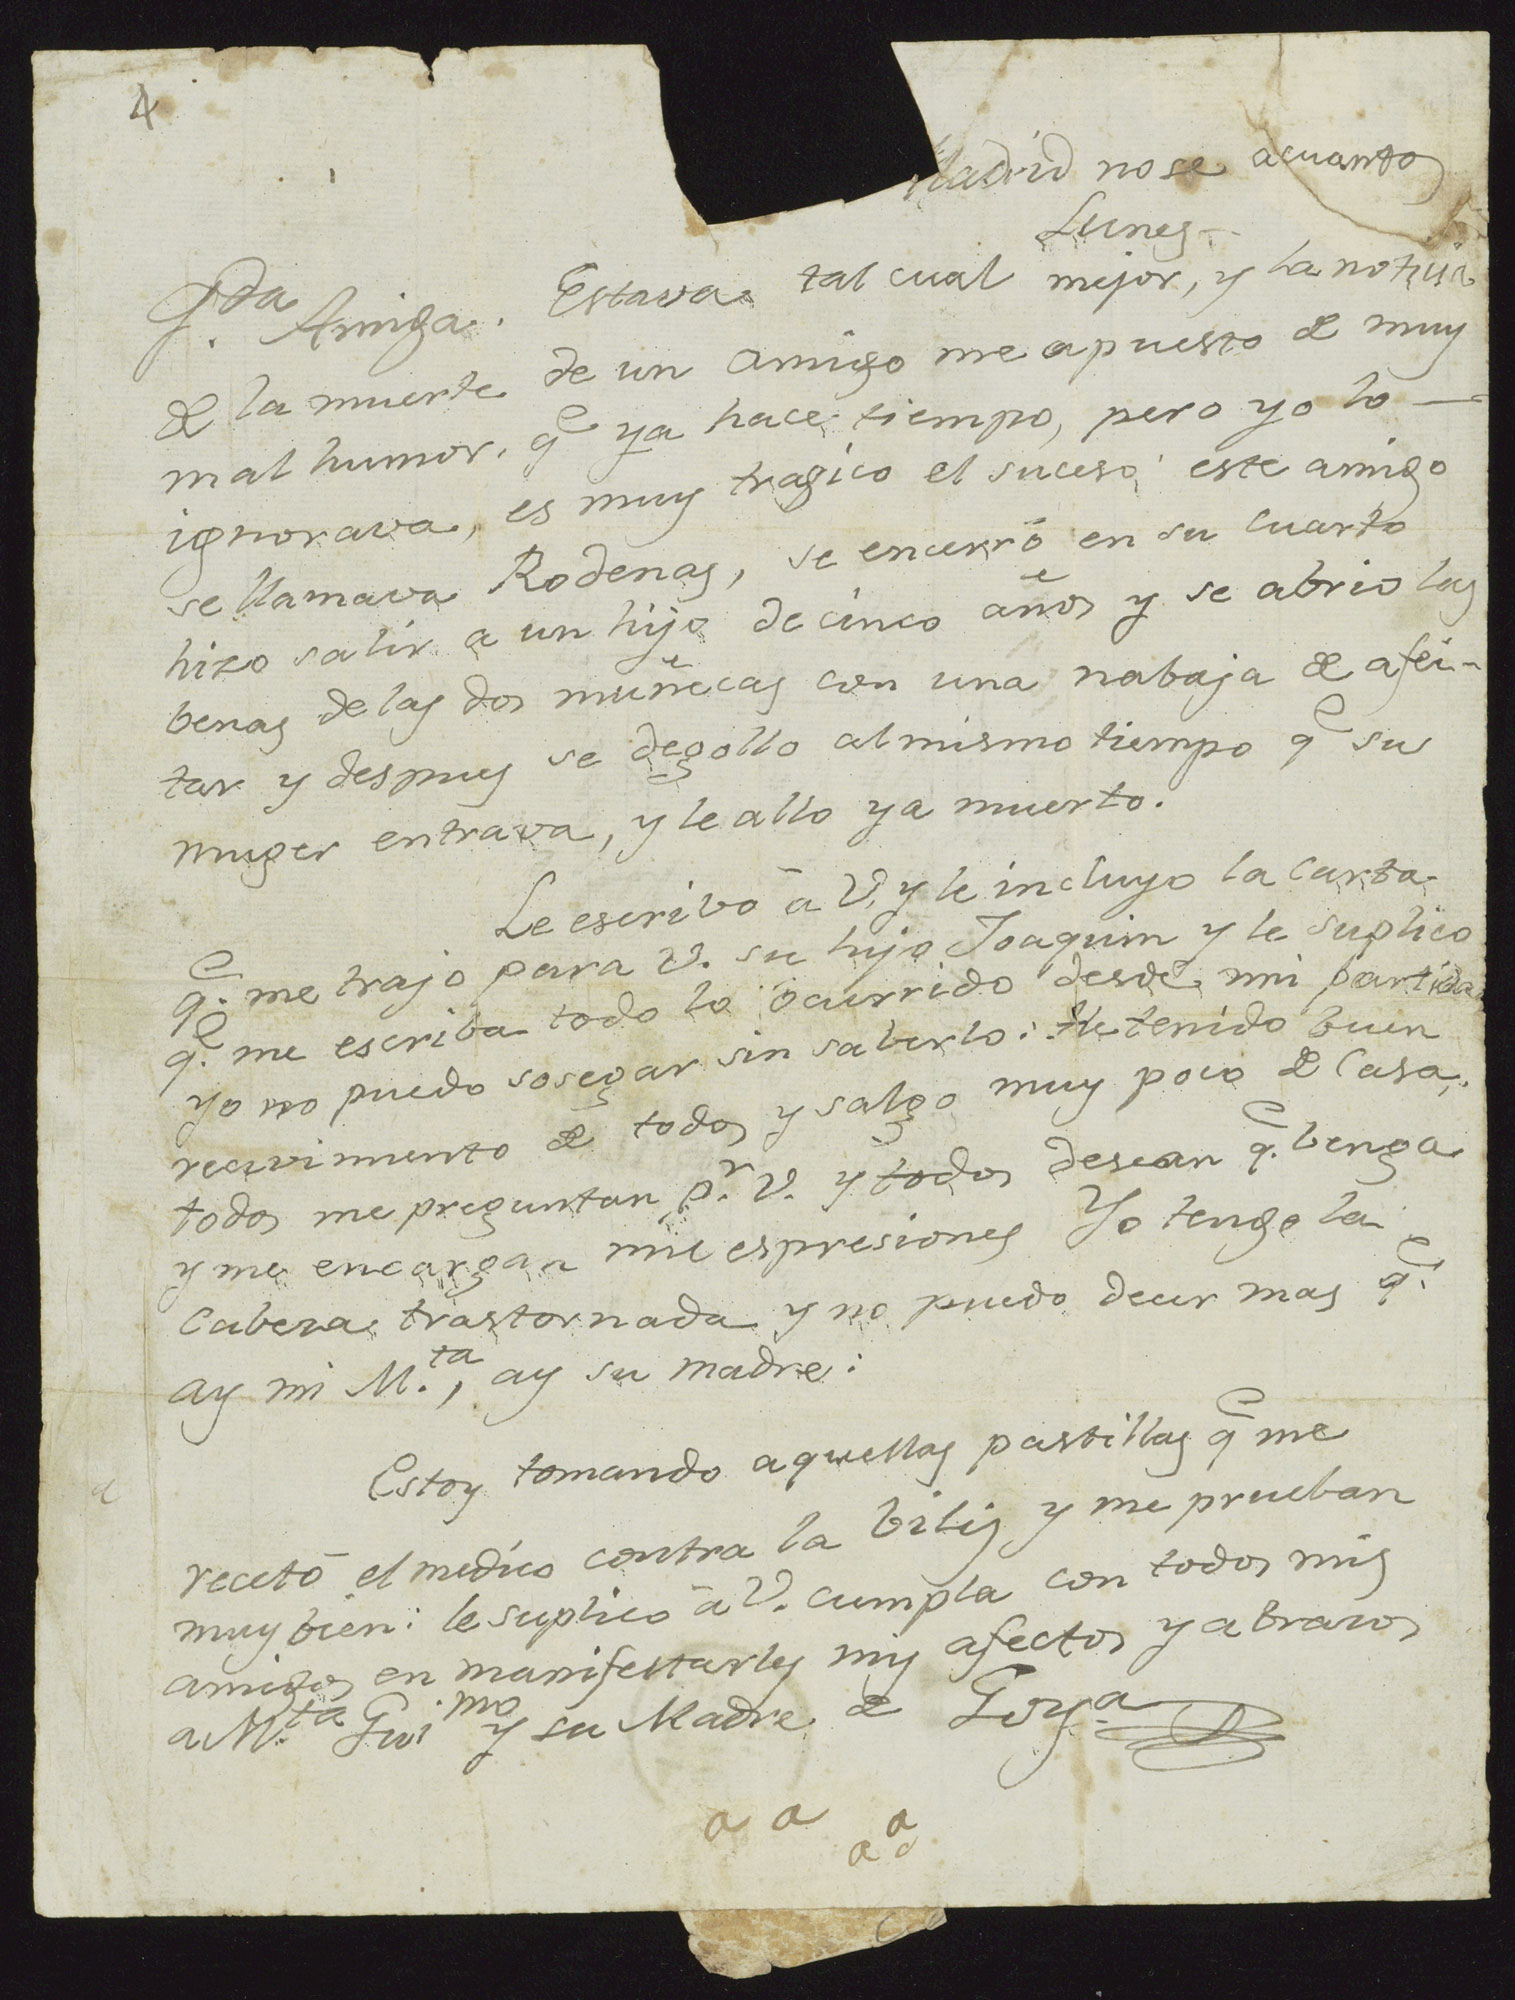 4
Madrid no se acuanto
Lunes
Q.da Amiga. Estava tal cual mejor, y la noticia
de la muerte de un amigo me a puesto de muy
mal humor, q.e ya hace tiempo, pero yo lo —
ignorava, es muy tragico el suceso: este amigo
se llamava Rodenas, se encerrō en su cuarto
hizo salir a un hijo de cinco años y se abrio las
benas de las dos muñecas con una nabaja de afei-
tar y despues se degollo al mismo tiempo q.e su
muger entrava, y le allo ya muerto.
Le escribo ā V. y le incluyo la carta
q.e me trajo para V. su hijo Joaquin y le suplico
q.e me escriba todo lo ocurrido desde mi partida
yo no puedo sosegar sin saberlo: He tenido buen
recivimiento de todos y salgo muy poco de Casa,
todos me preguntan p.r V. y todos desean q.e benga
y me encargan mil espresiones Yo tengo la
Cabeza trastornada y no puedo decir mas q.e
ay mi M.ta, ay su madre:
Estoy tomando aquellas pastillas q.e me
recetō el medico contra la bilis y me prueban
muy bien: le suplico ā V. cumpla con todos mis
amigos en manifestarles mis afectos y abrazos
a M.ta Gui.mo y su Madre de Goya
a a a a